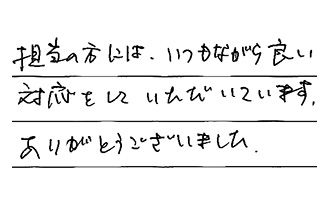 担当の方には、いつもながら良い
対応をして いただいています。
ありがとうございました.